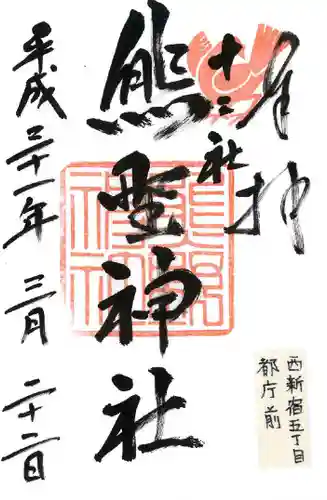 奉拝
十二社
熊野神社
平成三十一年 三月 二十二日
熊野神社
西新宿五丁目
都庁前